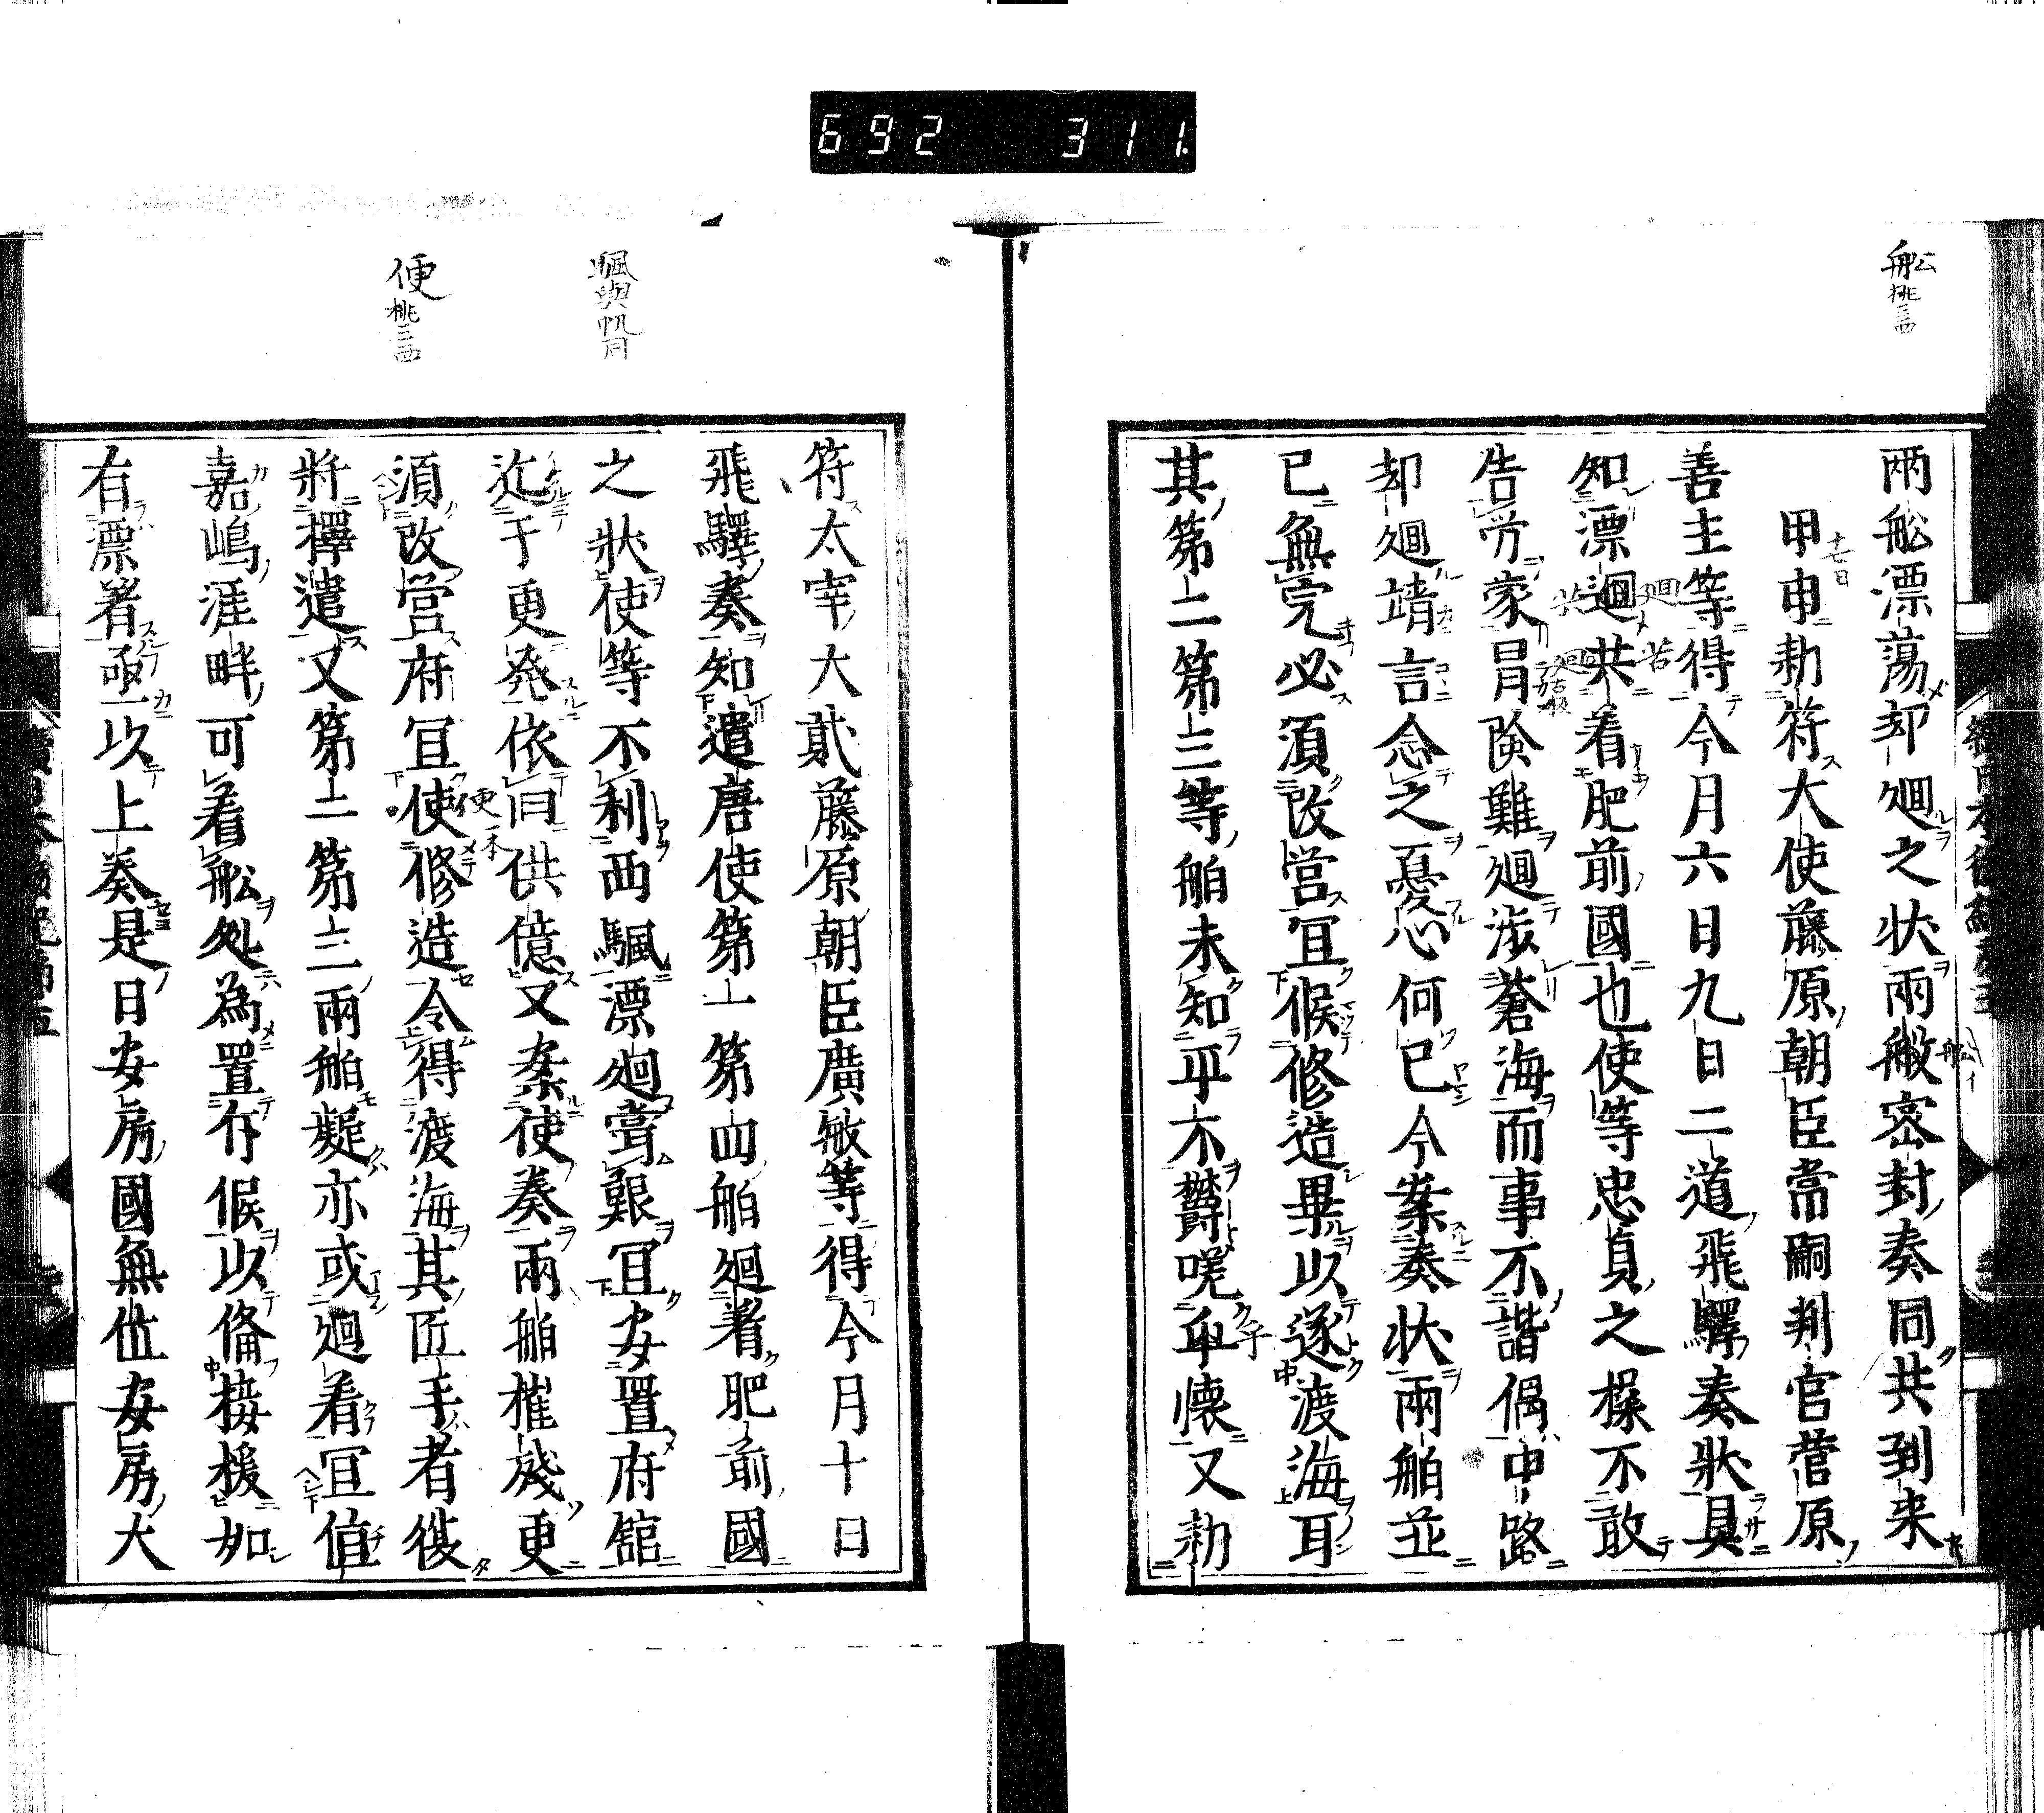 692 311
舩 桃三西
兩舩漂蕩却𢌞之状兩艘密封奏同共到来
甲申勅符大使藤原朝臣常嗣判官菅原
十七日
善主等得今月六日九日二道飛驛奏狀具
知漂廻共着肥前國也使等忠貞之操不敢
告労蒙冒險難廻渉蒼海而事不諧偶中路
却廻靖言念之憂心何已今案奏状兩舶並
已無完必須改営冝候修造畢以遂渡海耳
其第二第三等舶未知平不欝咲在懐又勅
颿與帆同
便 桃三西
符太宰大貳藤原朝臣廣敏等得今月十日
飛驛奏知遣唐使第一第四舶廻着肥前國
之狀使等不利西颿漂廻甞艱冝安置府舘
迄于更発依旧供億又案使奏兩舶摧残更
須改営府冝使修造令得渡海其匠手者復
便一本
將擇遣又第二第三兩舶疑亦或廻着冝值
嘉嶋涯畔可着舩処為置斥候以俻接援如
有漂著亟以上奏是日安房國無位安房大